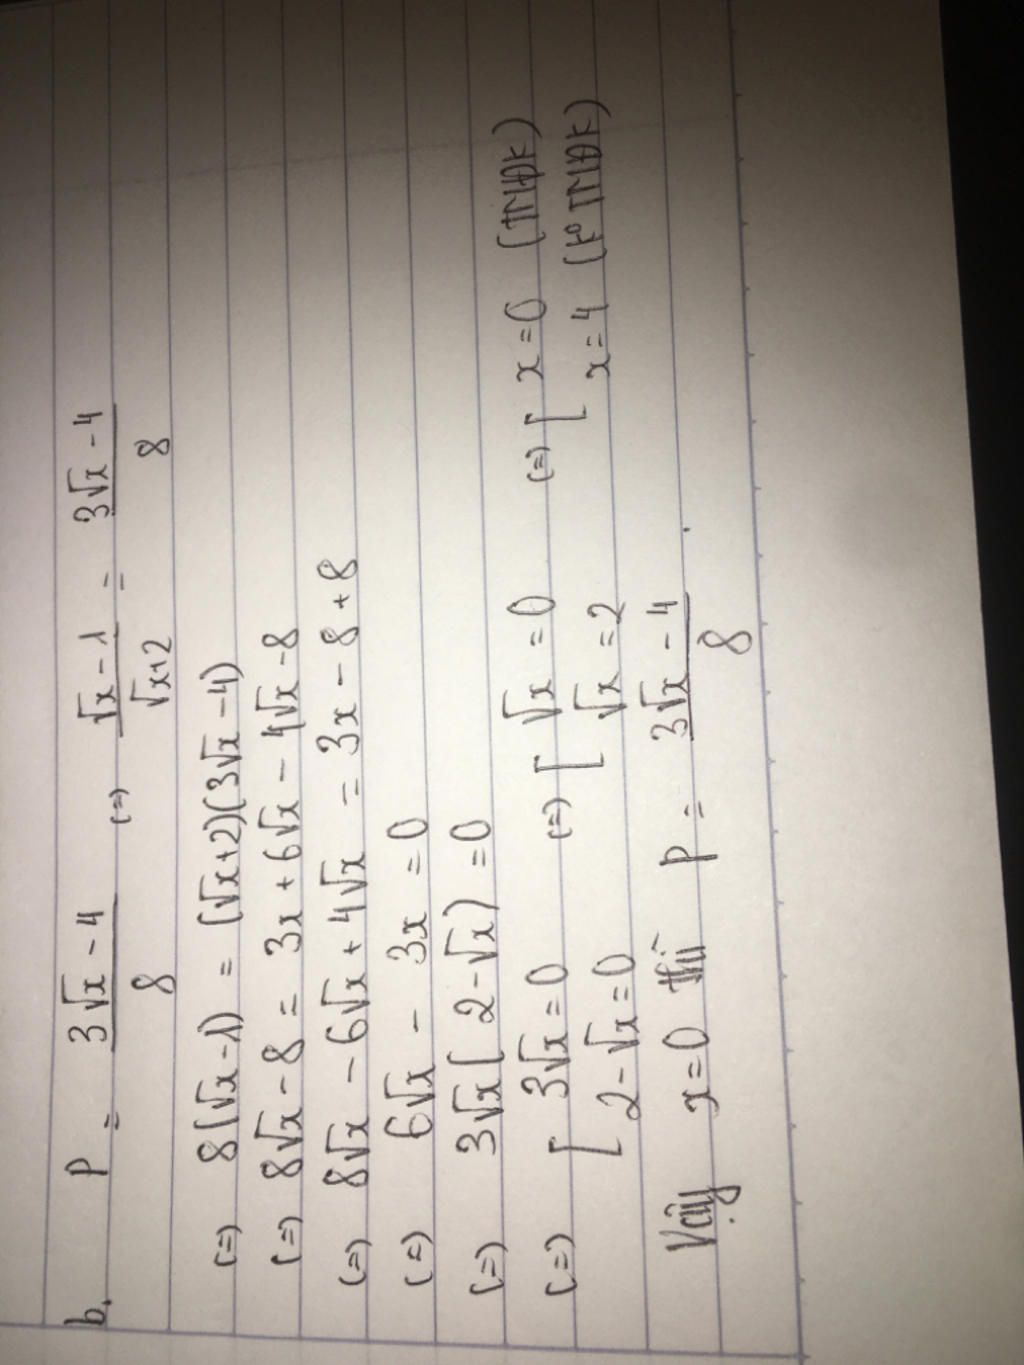 b, P = 3√x - 4 / 8 (=) √x - 1 / √x+2 = 3√x - 4 / 8
(=) 8(√x - 1) = (√x+2)(3√x - 4)
(=) 8√x - 8 = 3x + 6√x - 4√x - 8
(=) 8√x - 6√x + 4√x = 3x - 8 + 8
(=) 6√x - 3x = 0
(=) 3√x ( 2 - √x) = 0
(=) [ 3√x = 0 (=) [ √x = 0 (=) [ x = 0 (TMĐK)
2 - √x = 0 √x = 2 x = 4 (k° TMĐK)
Vậy x = 0 thì P = 3√x - 4 / 8 .